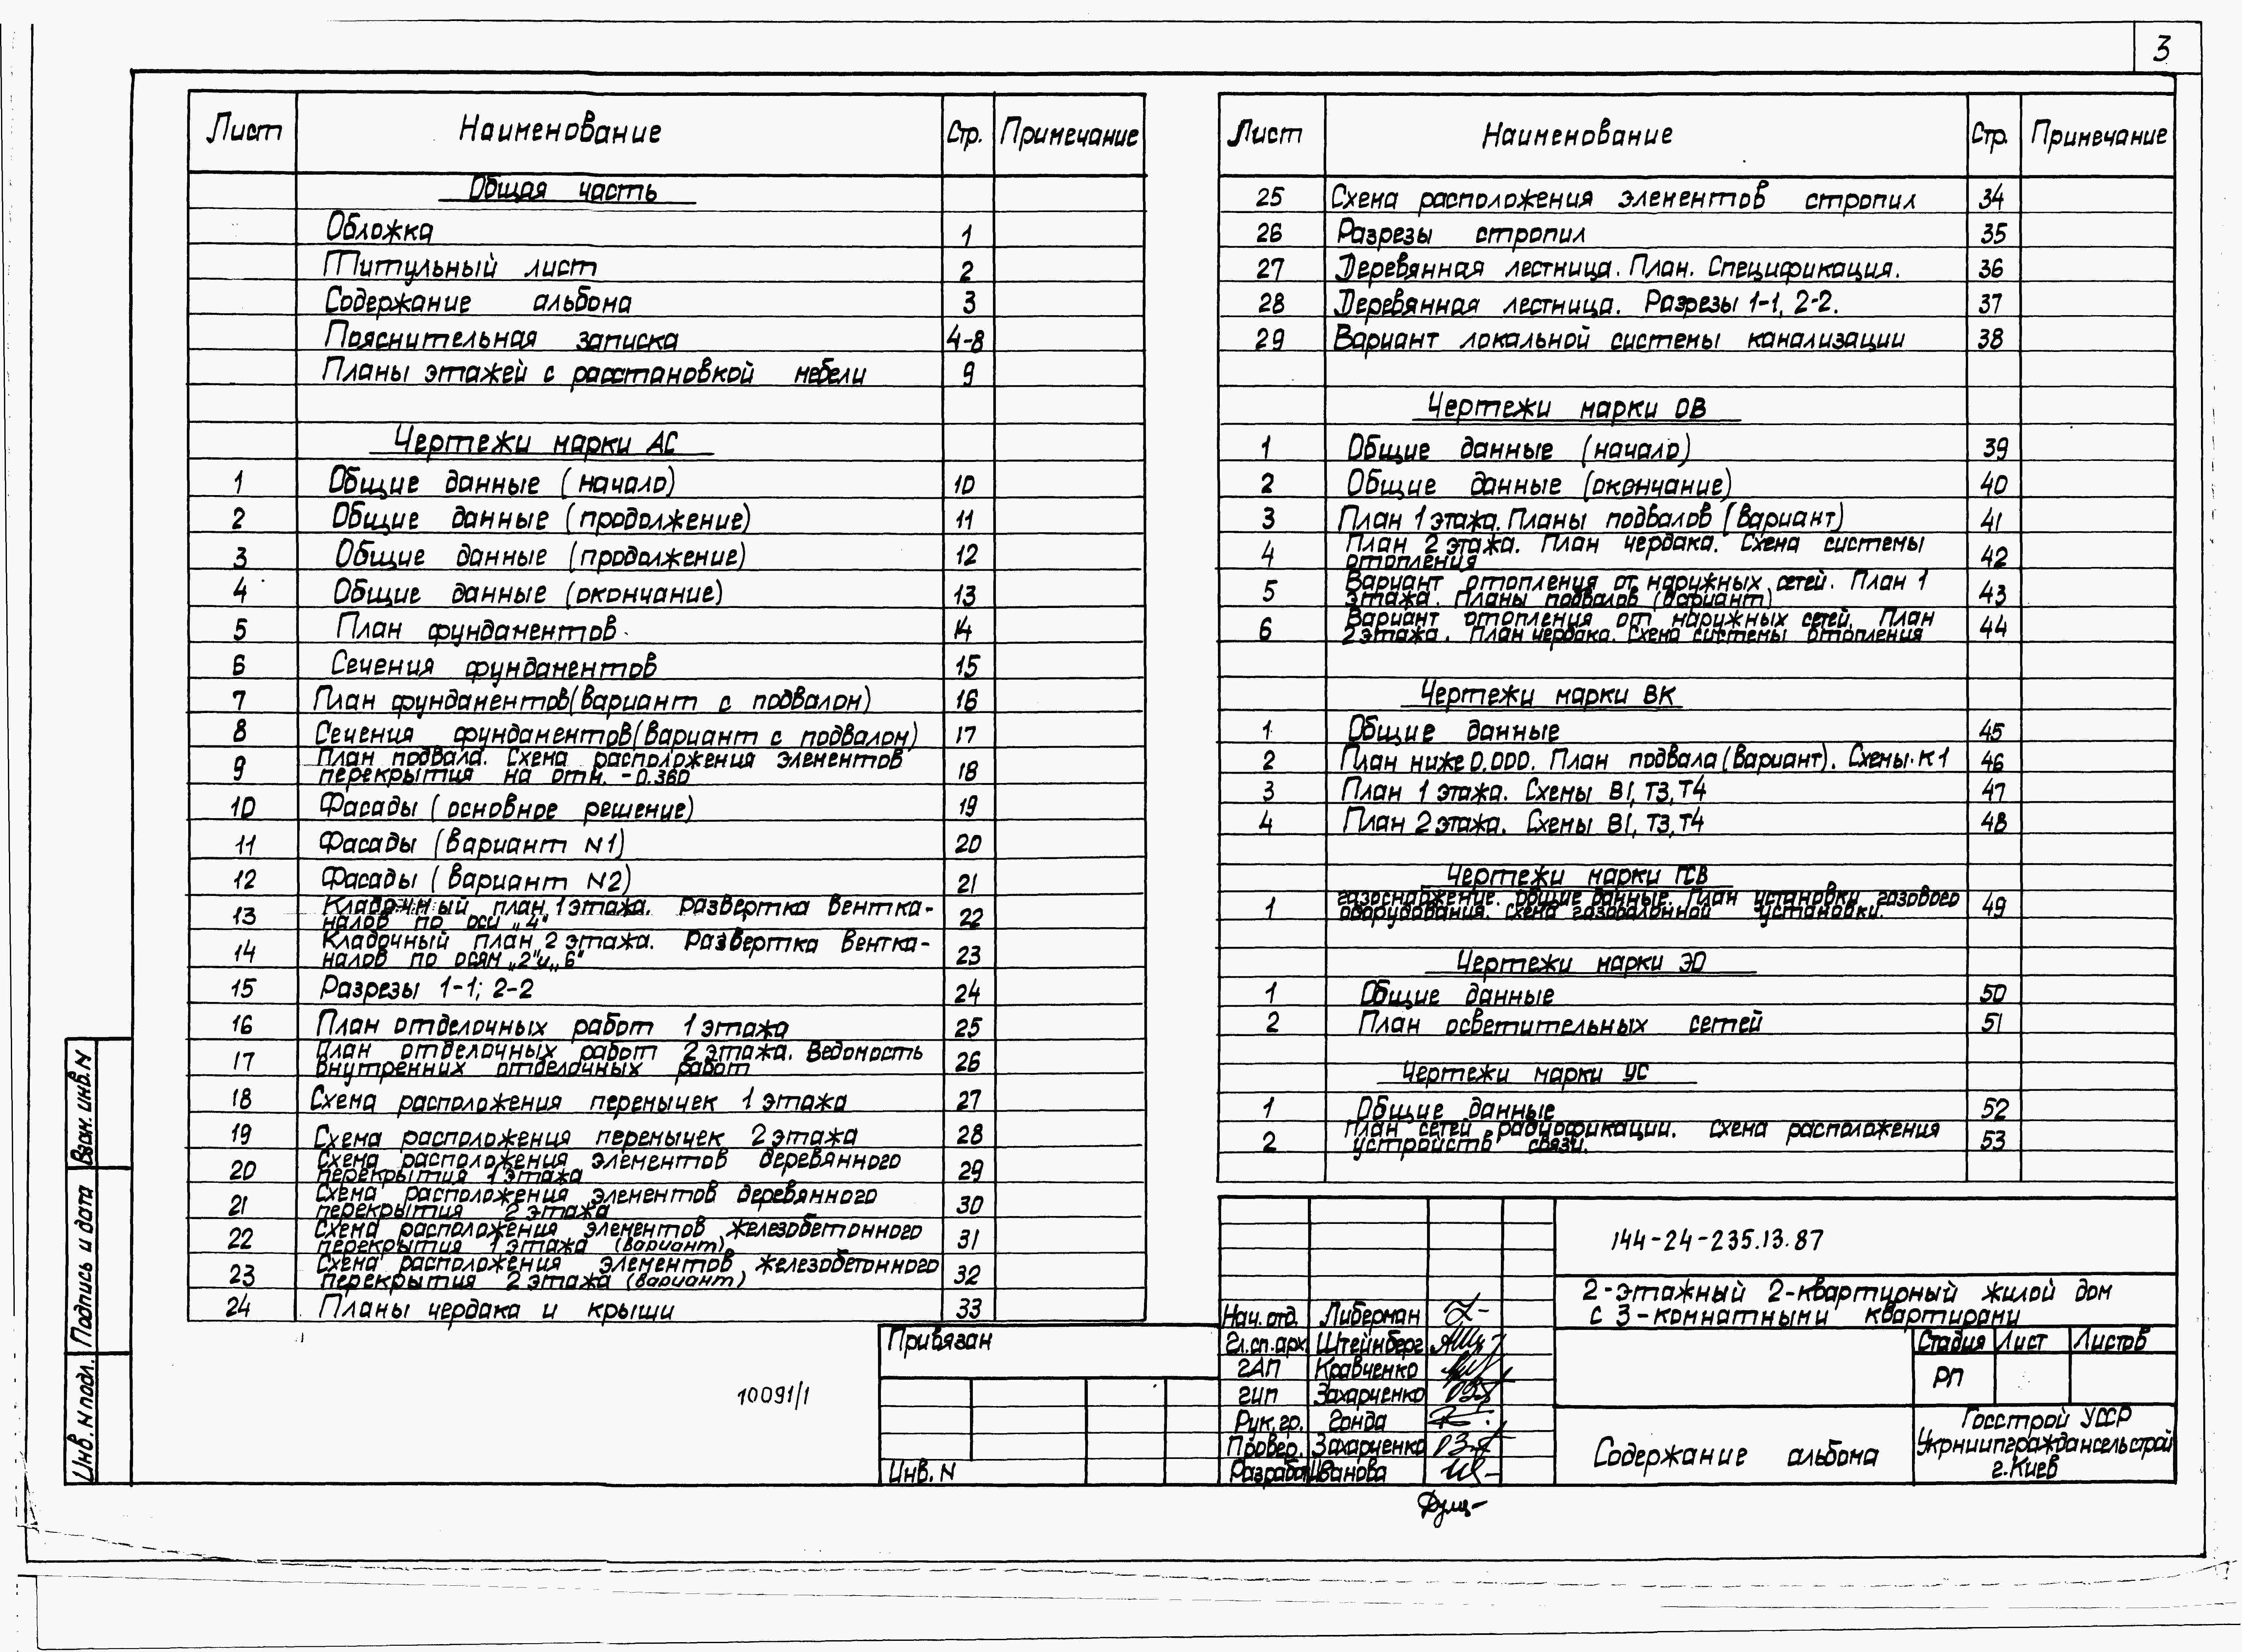 3
Лист Наименование Стр. Примечание
Общая часть
Обложка 1
Титульный лист 2
Содержание альбома 3
Пояснительная записка 4-8
Планы этажей с расстановкой мебели 9
Чертежи марки АС
1 Общие данные (начало) 10
2 Общие данные (продолжение) 11
3 Общие данные (продолжение) 12
4 Общие данные (окончание) 13
5 План фундаментов 14
6 Сечения фундаментов 15
7 План фундаментов (вариант с подвалом) 16
8 Сечения фундаментов (вариант с подвалом) 17
9 План подвала. Схема расположения элементов
перекрытия на отм. -0.360 18
10 Фасады (основное решение) 19
11 Фасады (вариант N1) 20
12 Фасады (вариант N2) 21
13 Кладочный план 1 этажа. Развертка вентка-
налов по оси „4" 22
14 Кладочный план 2 этажа. Развертка вентка-
налов по осям „2" и „6" 23
15 Разрезы 1-1; 2-2 24
16 План отделочных работ 1 этажа 25
17 План отделочных работ 2 этажа. Ведомость
внутренних отделочных работ 26
18 Схема расположения перемычек 1 этажа 27
19 Схема расположения перемычек 2 этажа 28
20 Схема расположения элементов деревянного
перекрытия 1 этажа 29
21 Схема расположения элементов деревянного
перекрытия 2 этажа 30
22 Схема расположения элементов железобетонного
перекрытия 1 этажа (вариант) 31
23 Схема расположения элементов железобетонного
перекрытия 2 этажа (вариант) 32
24 Планы чердака и крыши 33
Лист Наименование Стр. Примечание
25 Схема расположения элементов стропил 34
26 Разрезы стропил 35
27 Деревянная лестница. План. Спецификация. 36
28 Деревянная лестница. Разрезы 1-1, 2-2. 37
29 Вариант локальной системы канализации 38
Чертежи марки ОВ
1 Общие данные (начало) 39
2 Общие данные (окончание) 40
3 План 1 этажа. Планы подвалов (вариант) 41
4 План 2 этажа. План чердака. Схема системы
отопления 42
5 Вариант отопления от наружных сетей. План 1
этажа. Планы подвалов (вариант) 43
6 Вариант отопления от наружных сетей. План
2 этажа. План чердака. Схема системы отопления 44
Чертежи марки ВК
1 Общие данные 45
2 План ниже 0.000. План подвала (вариант). Схемы К1 46
3 План 1 этажа. Схемы В1, Т3, Т4 47
4 План 2 этажа. Схемы В1, Т3, Т4 48
Чертежи марки ГСВ
1 Газоснабжение. Общие данные. План установки газового
оборудования. Схема газобалонной установки. 49
Чертежи марки ЭО
1 Общие данные 50
2 План осветительных сетей 51
Чертежи марки УС
1 Общие данные 52
2 План сетей радиофикации. Схема расположения
устройств связи. 53
144-24-235.13.87
2-этажный 2-квартирный жилой дом
с 3-комнатными квартирами
Нач. отд. Либерман
Гл.сп.арх. Штейнберг
ГАП Кравченко
ГИП Захарченко
Рук. гр. Гонда
Провер. Захарченко
Разработ. Иванова
Стадия Лист Листов
РП
Содержание альбома
Госстрой УССР
Укрниипграждансельстрой
г. Киев
Привязан
Инв. N
10091/1
Взам. инв. N
Подпись и дата
Инв. N подл.